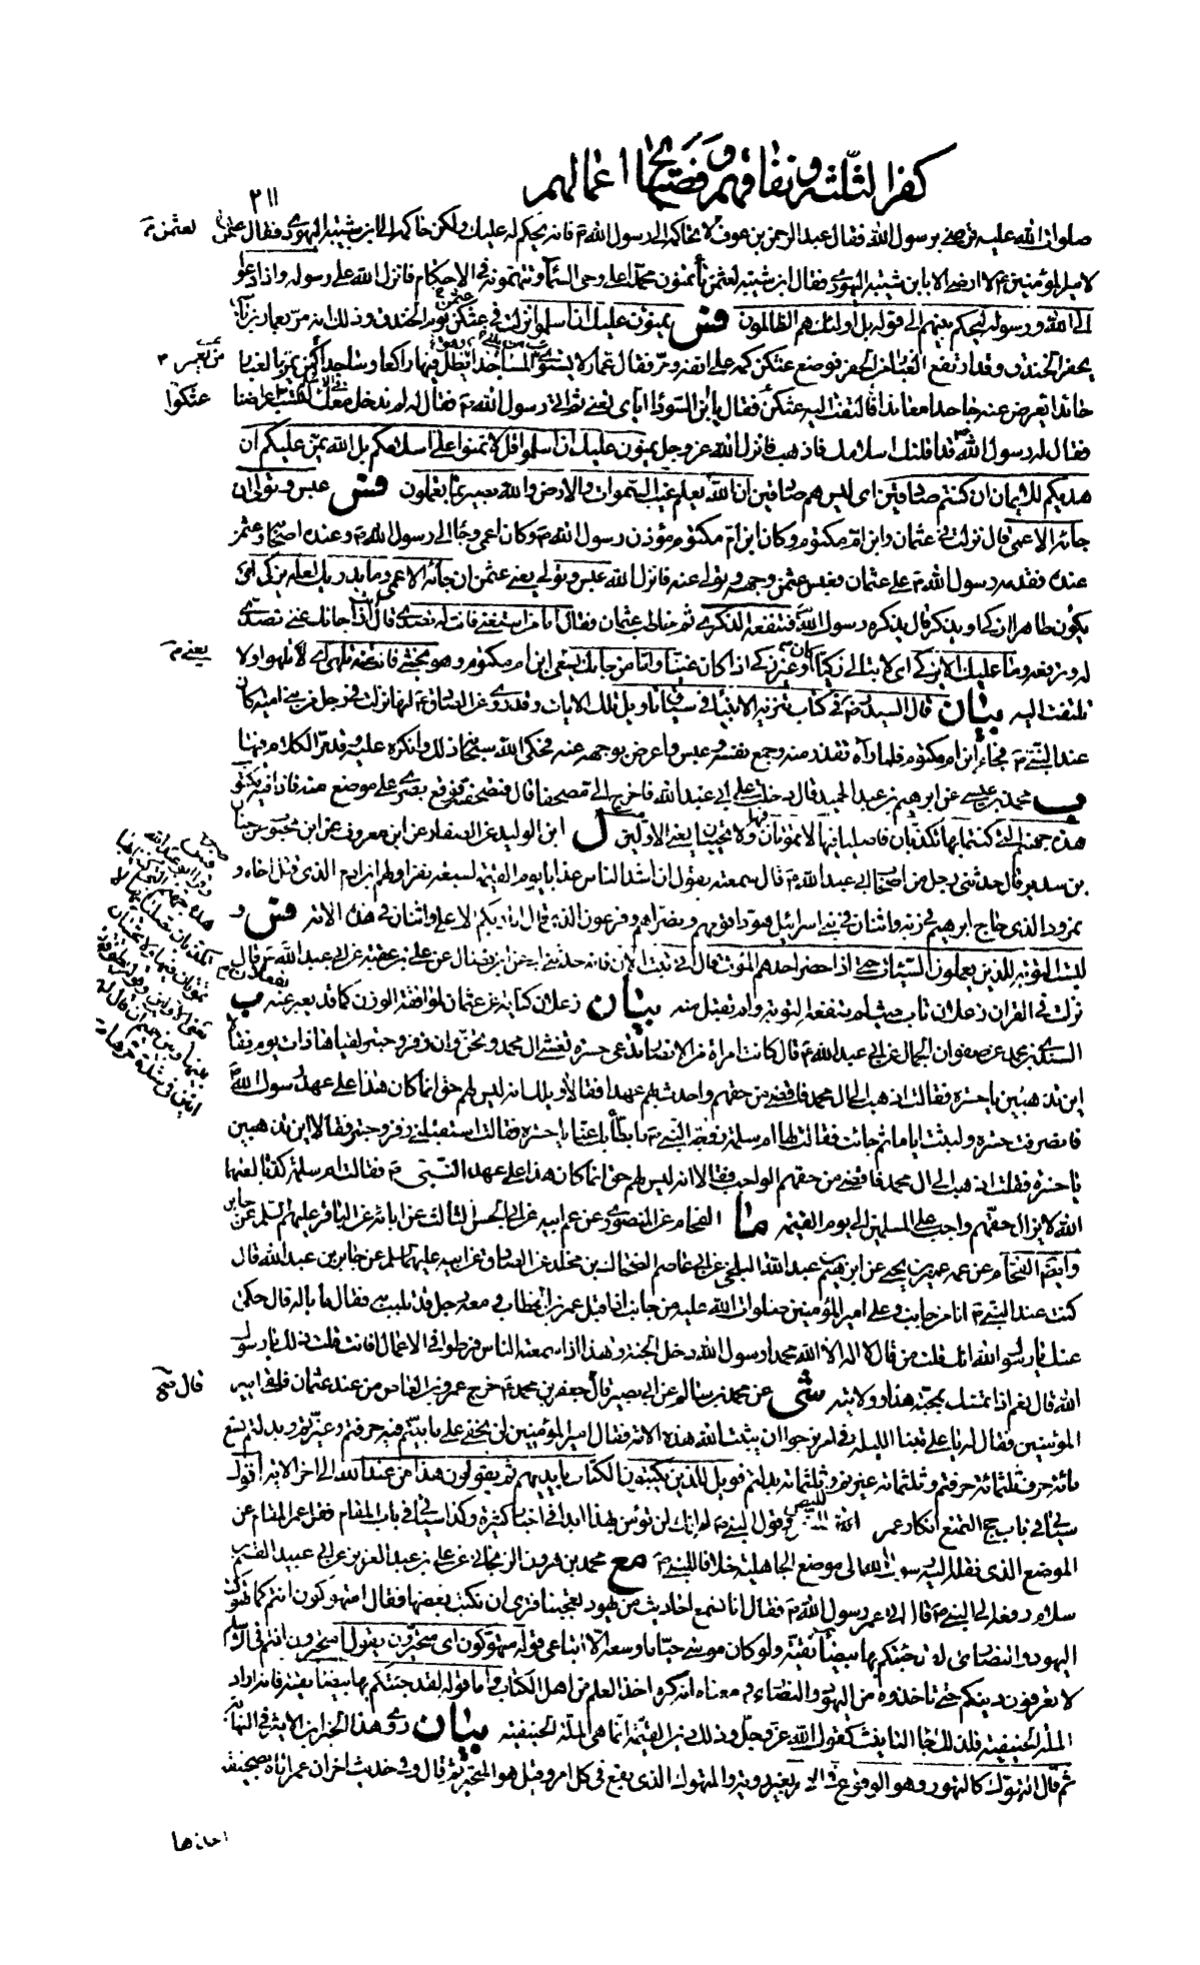 كفر الثلثة و نفاقهم و فضايح اعمالهم
٢١١
صلوات الله عليه ترضى برسول الله فقال عبد الرحمن بن عوف لا تحاكمه الى رسول الله ص فانه يحكم له عليك ولكن حاكمه الى ابن شيبة اليهودى فقال عثمن
لامير المؤمنين ع لا ارضى الا بابن شيبة اليهودى فقال ابن شيبة لعثمن تأتمنون محمدا على وحى السماء و تتهمونه فى الاحكام فانزل الله على رسوله واذا دعوا
الى الله و رسوله ليحكم بينهم الى قوله بل اولئك هم الظالمون فس يمنون عليك ان اسلموا نزلت فى عثكن يوم الخندق و ذلك انه مر بعمار بن ياسر
يحفر الخندق و قد ارتفع الغبار من الحفر فوضع عثكن كمه على انفه و مر فقال عمار لا يستوى من يعمر المساجدا يظل فيها راكعا و ساجدا كمن يمر بالغبار
حائدا يعرض عنه جاحدا معاندا فالتفت اليه عثكن فقال يا بن السوداء اياى تعنى ثم اتى رسول الله ص فقال له لم ندخل معك لتسب اعراضنا
فقال له رسول الله ص قد اقلتك اسلامك فاذهب فانزل الله عز وجل يمنون عليك ان اسلموا قل لا تمنوا على اسلامكم بل الله يمن عليكم ان
هديكم للايمان ان كنتم صادقين اى ليس هم صادقين ان الله يعلم غيب السموات والارض والله بصير بما تعملون فس عبس و تولى ان
جائه الاعمى قال نزلت فى عثمان و ابن ام مكتوم و كان ابن ام مكتوم مؤذن رسول الله ص و كان اعمى و جاء الى رسول الله ص و عنده اصحابه و عثمن
عنده فقدمه رسول الله ص على عثمان فعبس عثمن وجهه و تولى عنه فانزل الله عبس و تولى يعنى عثمن ان جائه الاعمى و ما يدريك لعله يزكى اى
يكون طاهرا ازكى او يذكر قال يذكره رسول الله ص فتنفعه الذكرى ثم خاطب عثمان فقال اما من استغنى فانت له تصدى قال انت اذا جائك غنى تتصدى
له و ترفعه و ما عليك الا يزكى اى لا تبالى زكيا كان او غير زكى اذا كان غنيا و اما من جائك يسعى ابن ام مكتوم و هو يخشى فانت عنه تلهى اى تلهو ولا
تلتفت اليه بيان قال السيد رض فى كتاب تنزيه الانبياء فى سياق تاويل تلك الايات و قد روى عن الصادق ع انها نزلت فى رجل من بنى امية كان
عند النبى ص فجاء ابن ام مكتوم فلما رآه تقذر منه و جمع نفسه و عبس و اعرض بوجهه عنه فحكى الله سبحانه ذلك و انكره عليه و قد مر الكلام فيها
ب محمد بن عيسى عن ابرهيم بن عبد الحميد قال دخلت على ابى عبد الله فاخرج الى مصحفا قال فتصفحته فوقع بصرى على موضع منه فاذا فيه مكتوب
هذه جهنم التى كنتما بها تكذبان فاصليا فيها لا تموتان فيها ولا تحييان يعنى الاولين ل ابن الوليد عن الصفار عن ابن معروف عن ابن محبوب عن حنان
بن سدير قال حدثنى رجل من اصحاب ابى عبد الله ع قال سمعته يقول ان اشد الناس عذابا يوم القيمة لسبعة نفر اولهم ابن ادم الذى قتل اخاه و
نمرود الذى حاج ابرهيم فى ربه و اثنان فى بنى اسرائيل هودا قومهم و نصراهم و فرعون الذى قال انا ربكم الاعلى و اثنان فى هذه الامة فس و
ليست التوبة للذين يعملون السيئات حتى اذا حضر احدهم الموت قال انى تبت الان فانه حدثنى ابى عن ابن فضال عن على بن عقبة عن ابى عبد الله ع قال
نزلت فى القران زعلان تاب حيث لم تنفعه التوبة و لم تقبل منه بيان زعلان كناية عن عثمان لموافقة الوزن كما قد يعبر عنه بفعلان ب
السندى بن محمد عن صفوان الجمال عن ابى عبد الله ع قال كانت امراة من الانصار تدعى حسرة تغشى ال محمد و تحن و ان زفر و حبتر لقياها ذات يوم فقالا
اين تذهبين يا حسرة فقالت اذهب الى ال محمد فاقضى من حقهم و احدث بهم عهدا فقالا ويلك انه ليس لهم حق انما كان هذا على عهد رسول الله ص
فانصرفت حسرة و لبثت اياما ثم جائت فقالت لها ام سلمة زوجة النبى ص ما ابطأ بك عنا يا حسرة فقالت استقبلنى زفر و حبتر فقالا اين تذهبين
يا حسرة فقلت اذهب الى ال محمد فاقضى من حقهم الواجب فقالا انه ليس لهم حق انما كان هذا على عهد النبى ص فقالت ام سلمة كذبا لعنهما
الله لا يزال حقهم واجب على المسلمين الى يوم القيمة ما الفحام عن المنصورى عن عم ابيه عن ابى الحسن الثالث عن ابائه عن الباقر عليهم السلم عن جابر
و ايضا الفحام عن عمه عمير بن يحيى عن ابرهيم بن عبد الله البلخى عن ابى عاصم الضحاك بن مخلد عن الصادق عن ابيه عليهما السلم عن جابر بن عبد الله قال
كنت عند النبى ص انا من جانب و على امير المؤمنين صلوات الله عليه من جانب اذ اقبل عمر بن الخطاب و معه رجل قد تلبب به فقال ما باله قال حكى
عنك يا رسول الله انك قلت من قال لا اله الا الله محمد رسول الله دخل الجنة و هذا اذا سمعته الناس فرطوا فى الاعمال افانت قلت ذلك يا رسول
الله قال نعم اذا تمسك بمحبة هذا و ولايته شى عن محمد بن سالم عن ابى بصير قال قال جعفر بن محمد ع خرج عمرو بن العاص من عند عثمان فلقى امير
المؤمنين فقال له يا على بتنا الليلة فى امر نرجوا ان يثبت الله هذه الامة فقال امير المؤمنين لن يخفى على ما بيتم فيه حرفتم و غيرتم و بدلتم تسع
مائة حرف ثلثمائة حرفتم و ثلثمائة غيرتم و ثلثمائة بدلتم فويل للذين يكتبون الكتاب بايديهم ثم يقولون هذا من عند الله الى اخر الاية اقول
سياتى فى باب حج التمتع انكار عمر و قول النبى ص له انك لن تؤمن بهذا ابدا فى اخبار كثيرة و كذا سياتى فى باب المقام نقل عمر المقام عن
الموضع الذى نقله اليه رسول الله الى موضع الجاهلية خلافا للنبى ص مع محمد بن هرون الزنجانى عن على بن عبد العزيز عن ابى عبيد القسم بن
سلام رفعه الى النبى ص قال اتى عمر رسول الله ص فقال انا نسمع احاديث من يهود تعجبنا فترى ان نكتب بعضها فقال امتهوكون انتم كما تهوكت
اليهود و النصارى لقد جئتكم بها بيضاء نقية و لو كان موسى حيا ما وسعه الا اتباعى قوله متهوكون اى متحيرون يقول امتحيرون انتم فى الاسلام
لا تعرفون دينكم حتى تاخذوه من اليهود و النصارى و معناه انه كره اخذ العلم من اهل الكتاب و اما قوله لقد جئتكم بها بيضاء نقية فانه اراد
الملة الحنيفية فلذلك جاء التانيث كقول الله عز و جل و ذلك دين القيمة انما هى الملة الحنيفية بيان روى هذا الخبر ابن الاثير فى النهاية
ثم قال التهوك كالتهور و هو الوقوع فى الامر بغير روية و المتهوك الذى يقع فى كل امر و قيل هو المتحير ثم قال و فى حديث اخر ان عمر اتاه بصحيفة
لعثمن
من يعمر
عثكوا
يعنى
قال
اخذها